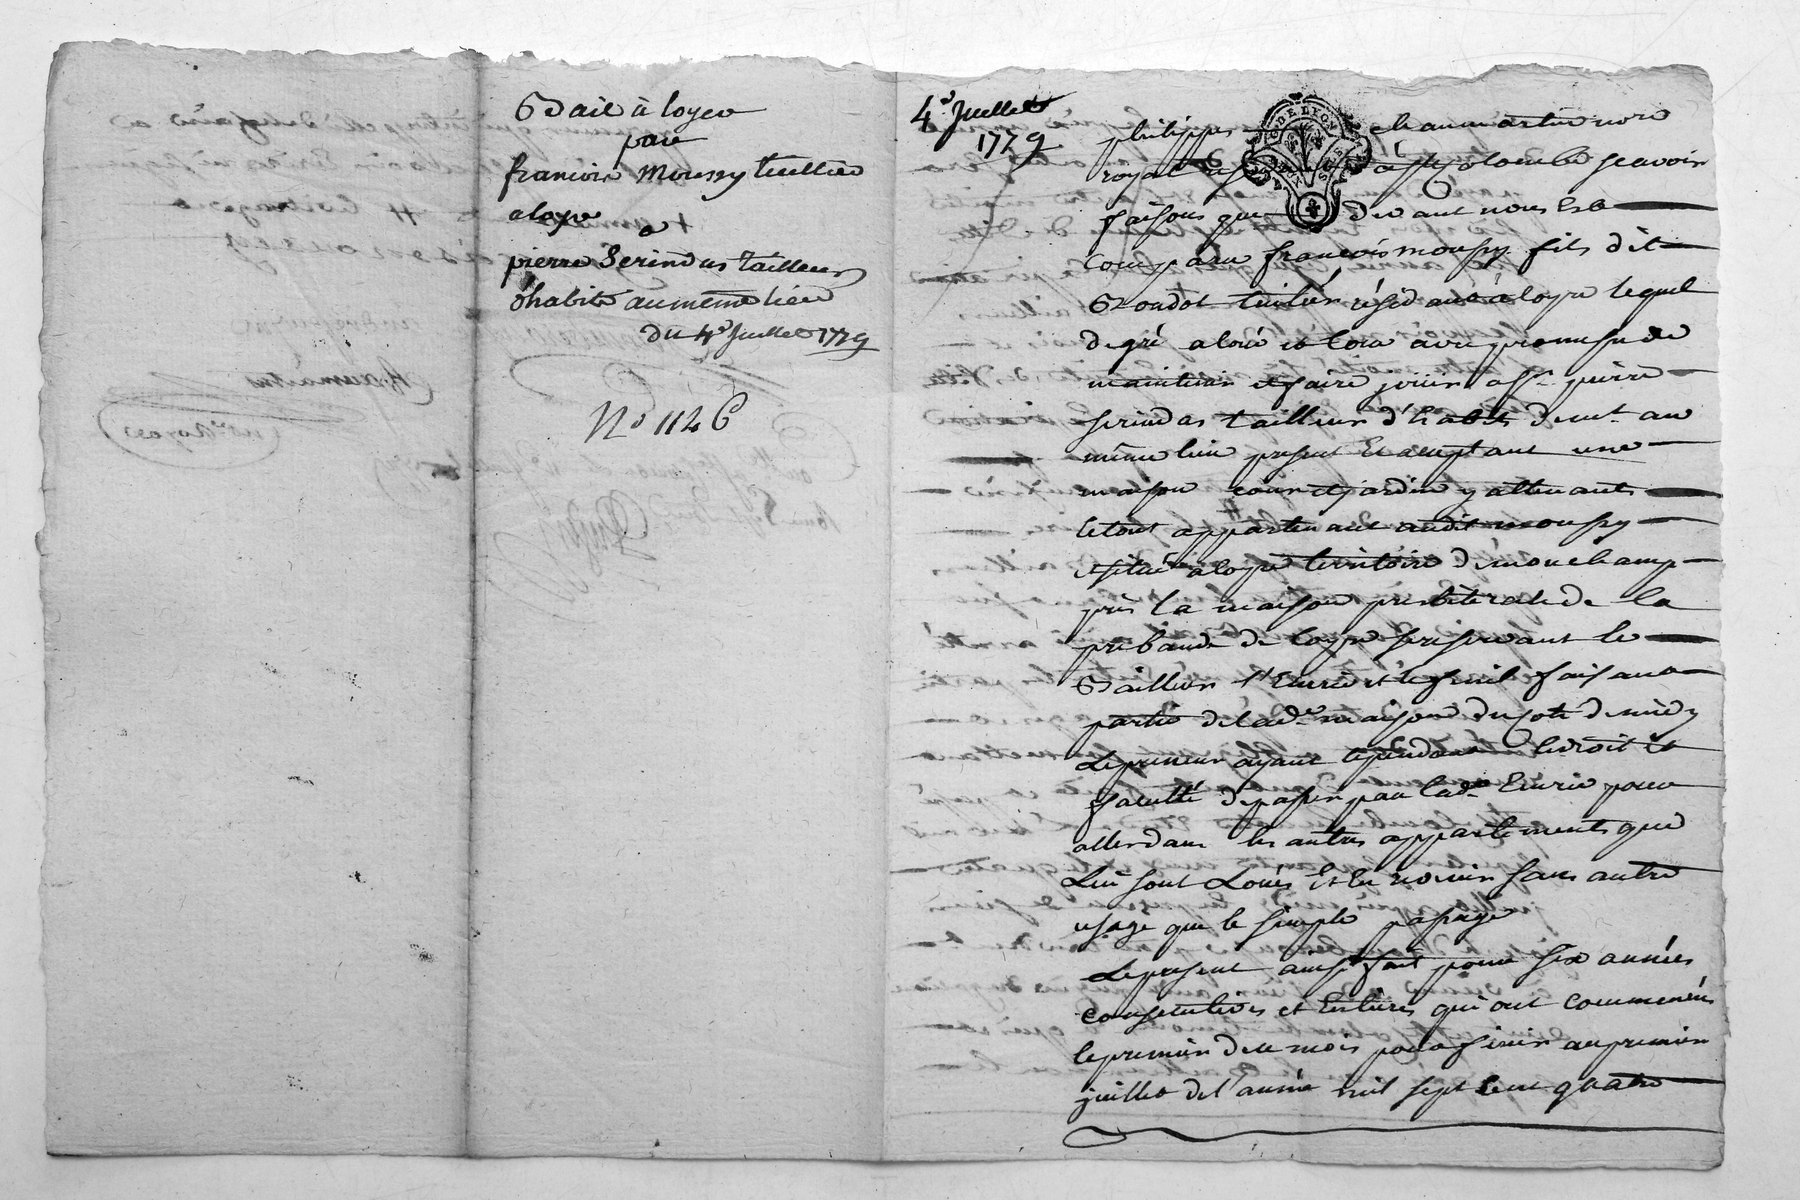 Bail à loyer
par
francois Moussy tuillier
a loyre
a
pierre Serindas tailleur
d'habits au meme lieu
du 4e Juillet 1779
No 1126
4e Juillet
1779
philippes chaumartin nore
royal a Ste Colombe scavoir
faisons que devant nous Est
Comparu francois moussy fils dit
Boudot tuilier résidant à loyre lequel
de gré a loué et loue avec promesse de
maintenir et faire jouir a Sr pierre
serindas tailleur d'habits demt au
même lieu present et acceptant une
maison cour et jardin y attenants
le tout appartenant audit moussy
et situé à loyre territoire de mouchamp
près la maison presbiterale de la
prébande de loyre se reservant le
Bailleur l'Ecurie et le fenil faisant
partie de lade maison du coté de midy
Le preneur ayant cependant le droit et
faculté de passer par lade Ecurie pour
aller dans les autres appartements que
Lui sont Loués Et en revenir sans autre
usage que le simple passage
Le present ainsi fait pour six années
consecutives et Entieres qui ont commencés
le premier de ce mois pour finir au premier
juillet de l'année mil sept cent quatre